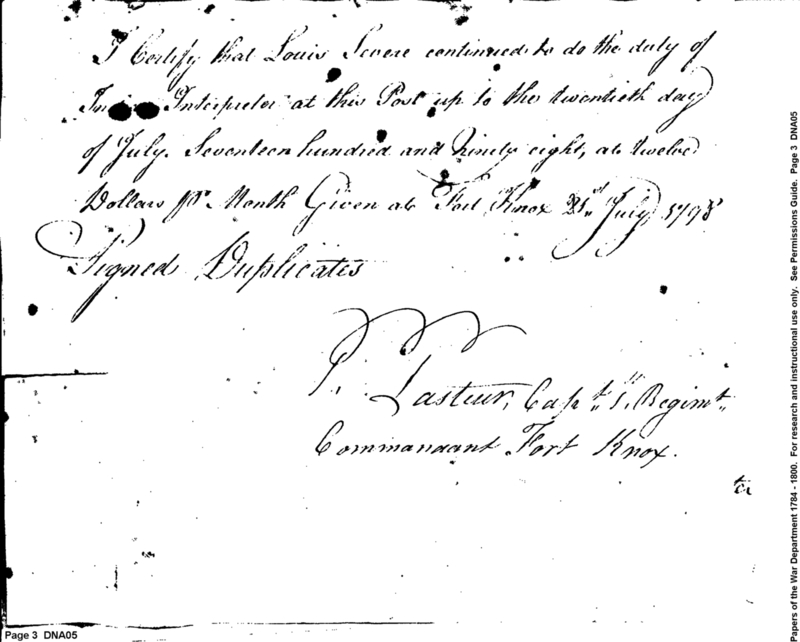 I Certify that Louis Severe continued to do the duty of
Interpreter at this Post up to the twentieth day
of July. Seventeen hundred and Ninety eight, at twelve
Dollars pr. Month Given at Fort Knox 21st July 1798
Signed Duplicates
P. Pasteur, Capt. 1st Regimt.
Commandant Fort Knox.
Page 3 DNA05
Papers of the War Department 1784 - 1800. For research and instructional use only. See Permissions Guide. Page 3 DNA05